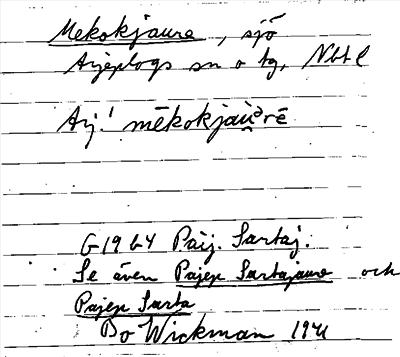 Mekokjaure, sjö
Arjeplogs sn o tg, Nbt l
Arj.! mēkokjau̯ᵊrē
G1964 Paij. Sartaj.
Se även Pajep Sartajaure och
Pajep Sarta
Bo Wickman 1941